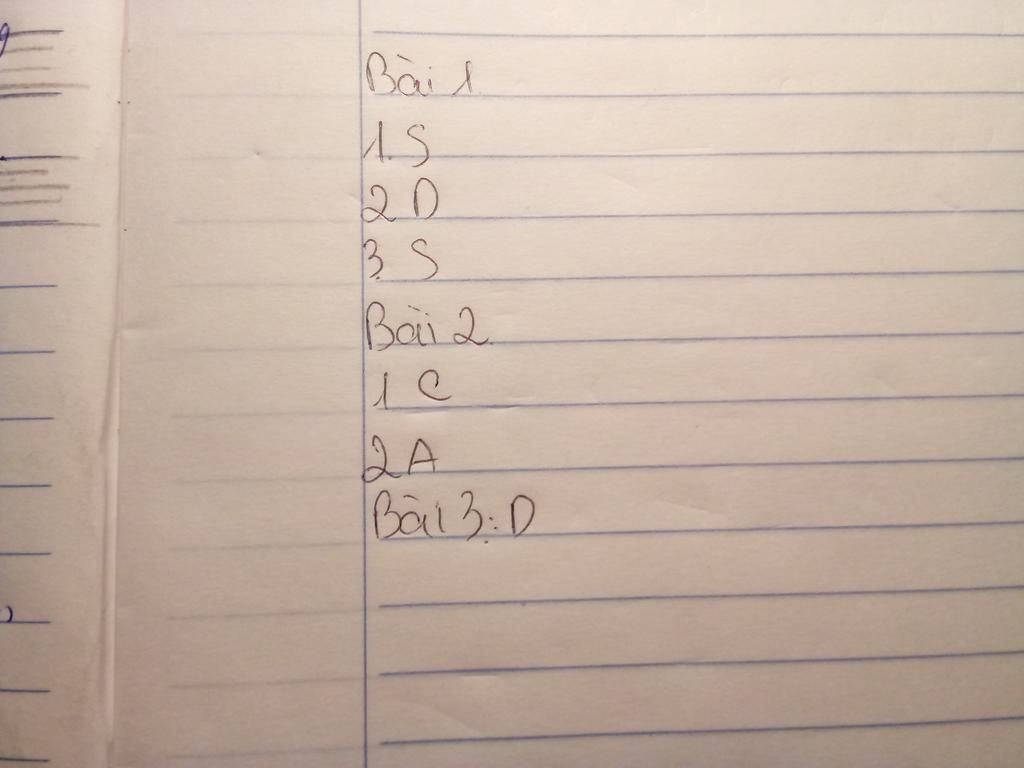 Bài 1
1. S
2 D
3. S
Bài 2
1 C
2 A
Bài 3: D